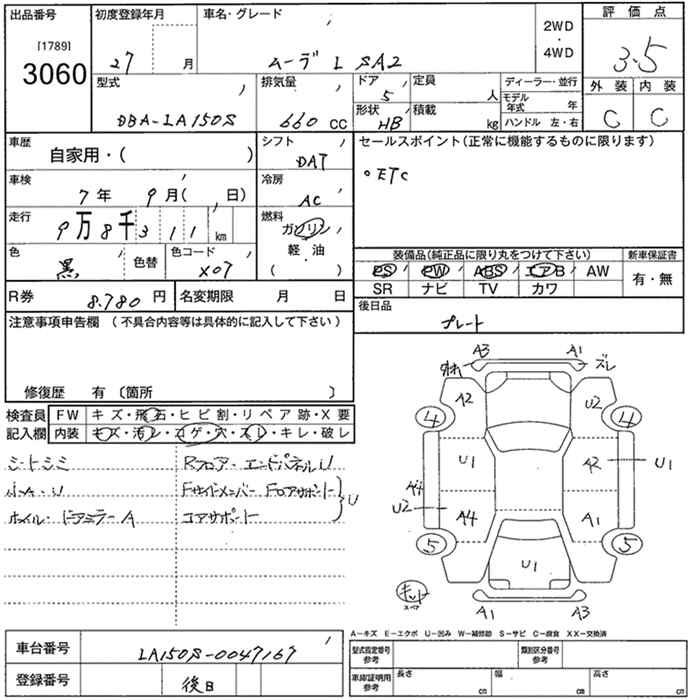 出品番号 初度登録年月 車名・グレード 2WD・4WD 評価点
[1789]
3060 27 月 ムーヴ L SA2 3.5
型式 排気量 ドア 定員 ディーラー・並行 外装 内装
5 人 モデル年式 年
DBA-LA150S 660 CC 形状 HB 積載 kg ハンドル 左・右 C C
車歴 自家用・( ) シフト DAT セールスポイント(正常に機能するものに限ります)
車検 7年 9月( 日) 冷房 AC ○ETC
走行 9万8千311 km 燃料 ガソリン
軽・油
( )
色 黒 色替 色コード X07 装備品(純正品に限り丸をつけて下さい) 新車保証書
PS PW ABS エアB AW 有・無
SR ナビ TV カワ
R券 8.780円 名変期限 月 日 後日品
プレート
注意事項申告欄 (不具合内容等は具体的に記入して下さい)
修復歴 有 〔箇所 〕
検査員記入欄 FW キズ・飛石・ヒビ割・リペア跡・X要
内装 キズ・汚レ・コゲ・穴・スレ・キレ・破レ
シートシミ Rフロア・エンドパネルU
小A・U Fサイドメンバー Fロアサポート U
ホイル・ドアミラーA コアサポート
A3 A1 ズレ
A2 U2
4 4
U1 A2 U1
U2 A4 A1
5 5
U1
キット スペア
A1 A3
A-キズ E-エクボ U-凹み W-補修跡 S-サビ C-腐食 XX-交換済
車台番号 LA150S-0047167 型式指定番号 参考 類別区分番号 参考
登録番号 後日 車庫証明用 参考 長さ cm 幅 cm 高さ cm